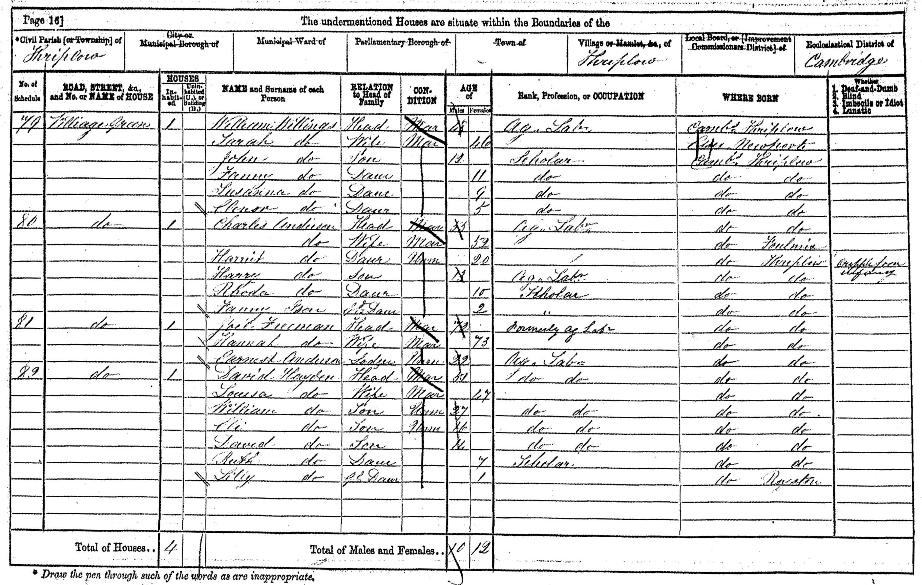 Page 16] The undermentioned Houses are situate within the Boundaries of the
*Civil Parish [or Township] of City or Municipal Borough of Municipal Ward of Parliamentary Borough of Town of Village or Hamlet, &c., of Local Board, or [Improvement Commissioners District] of Ecclesiastical District of
Thriplow Thriplow Cambridge
No. of Schedule ROAD, STREET, &c., and No. or NAME of HOUSE HOUSES In-habited Unin-habited (U.), or Building (B.) NAME and Surname of each Person RELATION to Head of Family CON-DITION AGE of Males Females Rank, Profession, or OCCUPATION WHERE BORN Whether 1. Deaf-and-Dumb 2. Blind 3. Imbecile or Idiot 4. Lunatic
79 Village Green 1 William Head Mar 45 Ag. Labr Cambs Thriplow
Sarah do Wife Mar 46 Newport
John do Son 12 Scholar Cambs Thriplow
Fanny do Daur 11 do do do
Susanna do Daur 9 do do do
Elenor do Daur 5 do do do
80 do 1 Charles Anderson Head Mar Ag. Labr do do
do Wife Mar 52 do Foulmire
Harriet do Daur Unm 20 do Thriplow Cripple from infancy
Harry do Son 13 Ag. Labr do do
Rhoda do Daur 10 Scholar do do
Fanny G.C. Daur 2 " do do
81 do 1 Freeman Head Mar 72 Formerly ag Labr do do
Hannah do Wife Mar 73 do do
Earnest Anderson Lodger Unm 22 Ag. Labr do do
82 do 1 David Hayden Head Mar 51 do do do do
Louisa do Wife Mar 47 do do
William do Son Unm 27 do do do do
Eli do Son Unm 16 do do do do
David do Son 14 do do do do
Ruth do Daur 7 Scholar do do
Lily do G.C. Daur 1 do Royston
Total of Houses.. 4 Total of Males and Females.. 10 12
* Draw the pen through such of the words as are inappropriate.